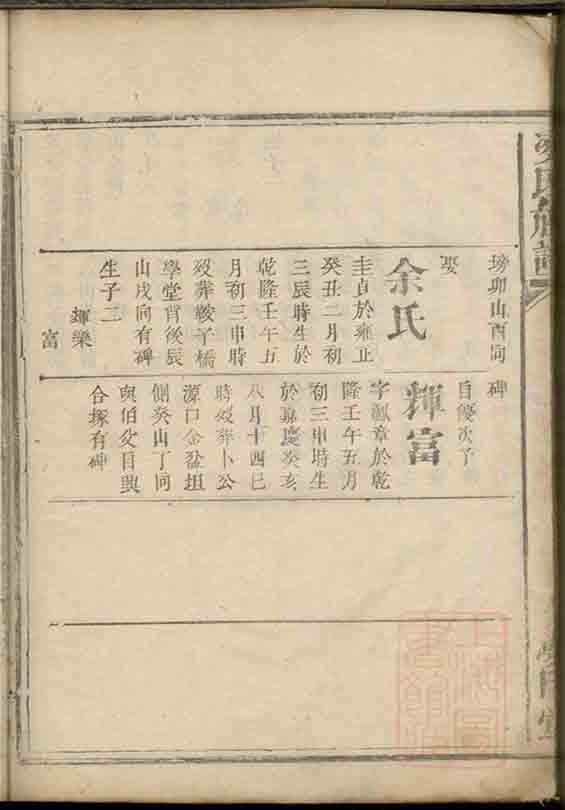 塝卯山酉向
碑
娶
余氏
圭貞於雍正
癸丑二月初
三辰時生於
乾隆壬午五
月初三申時
歿葬鞍子橋
學堂背後辰
山戌向有碑
生子二
輝樂
富
自優次子
輝富
字 章於乾
隆壬午五月
初三申時生
於嘉慶癸亥
八月十四巳
時歿葬卜公
源口金盆坦
側癸山丁向
與伯父目興
合塚有碑
氏族譜
上海圖書館藏